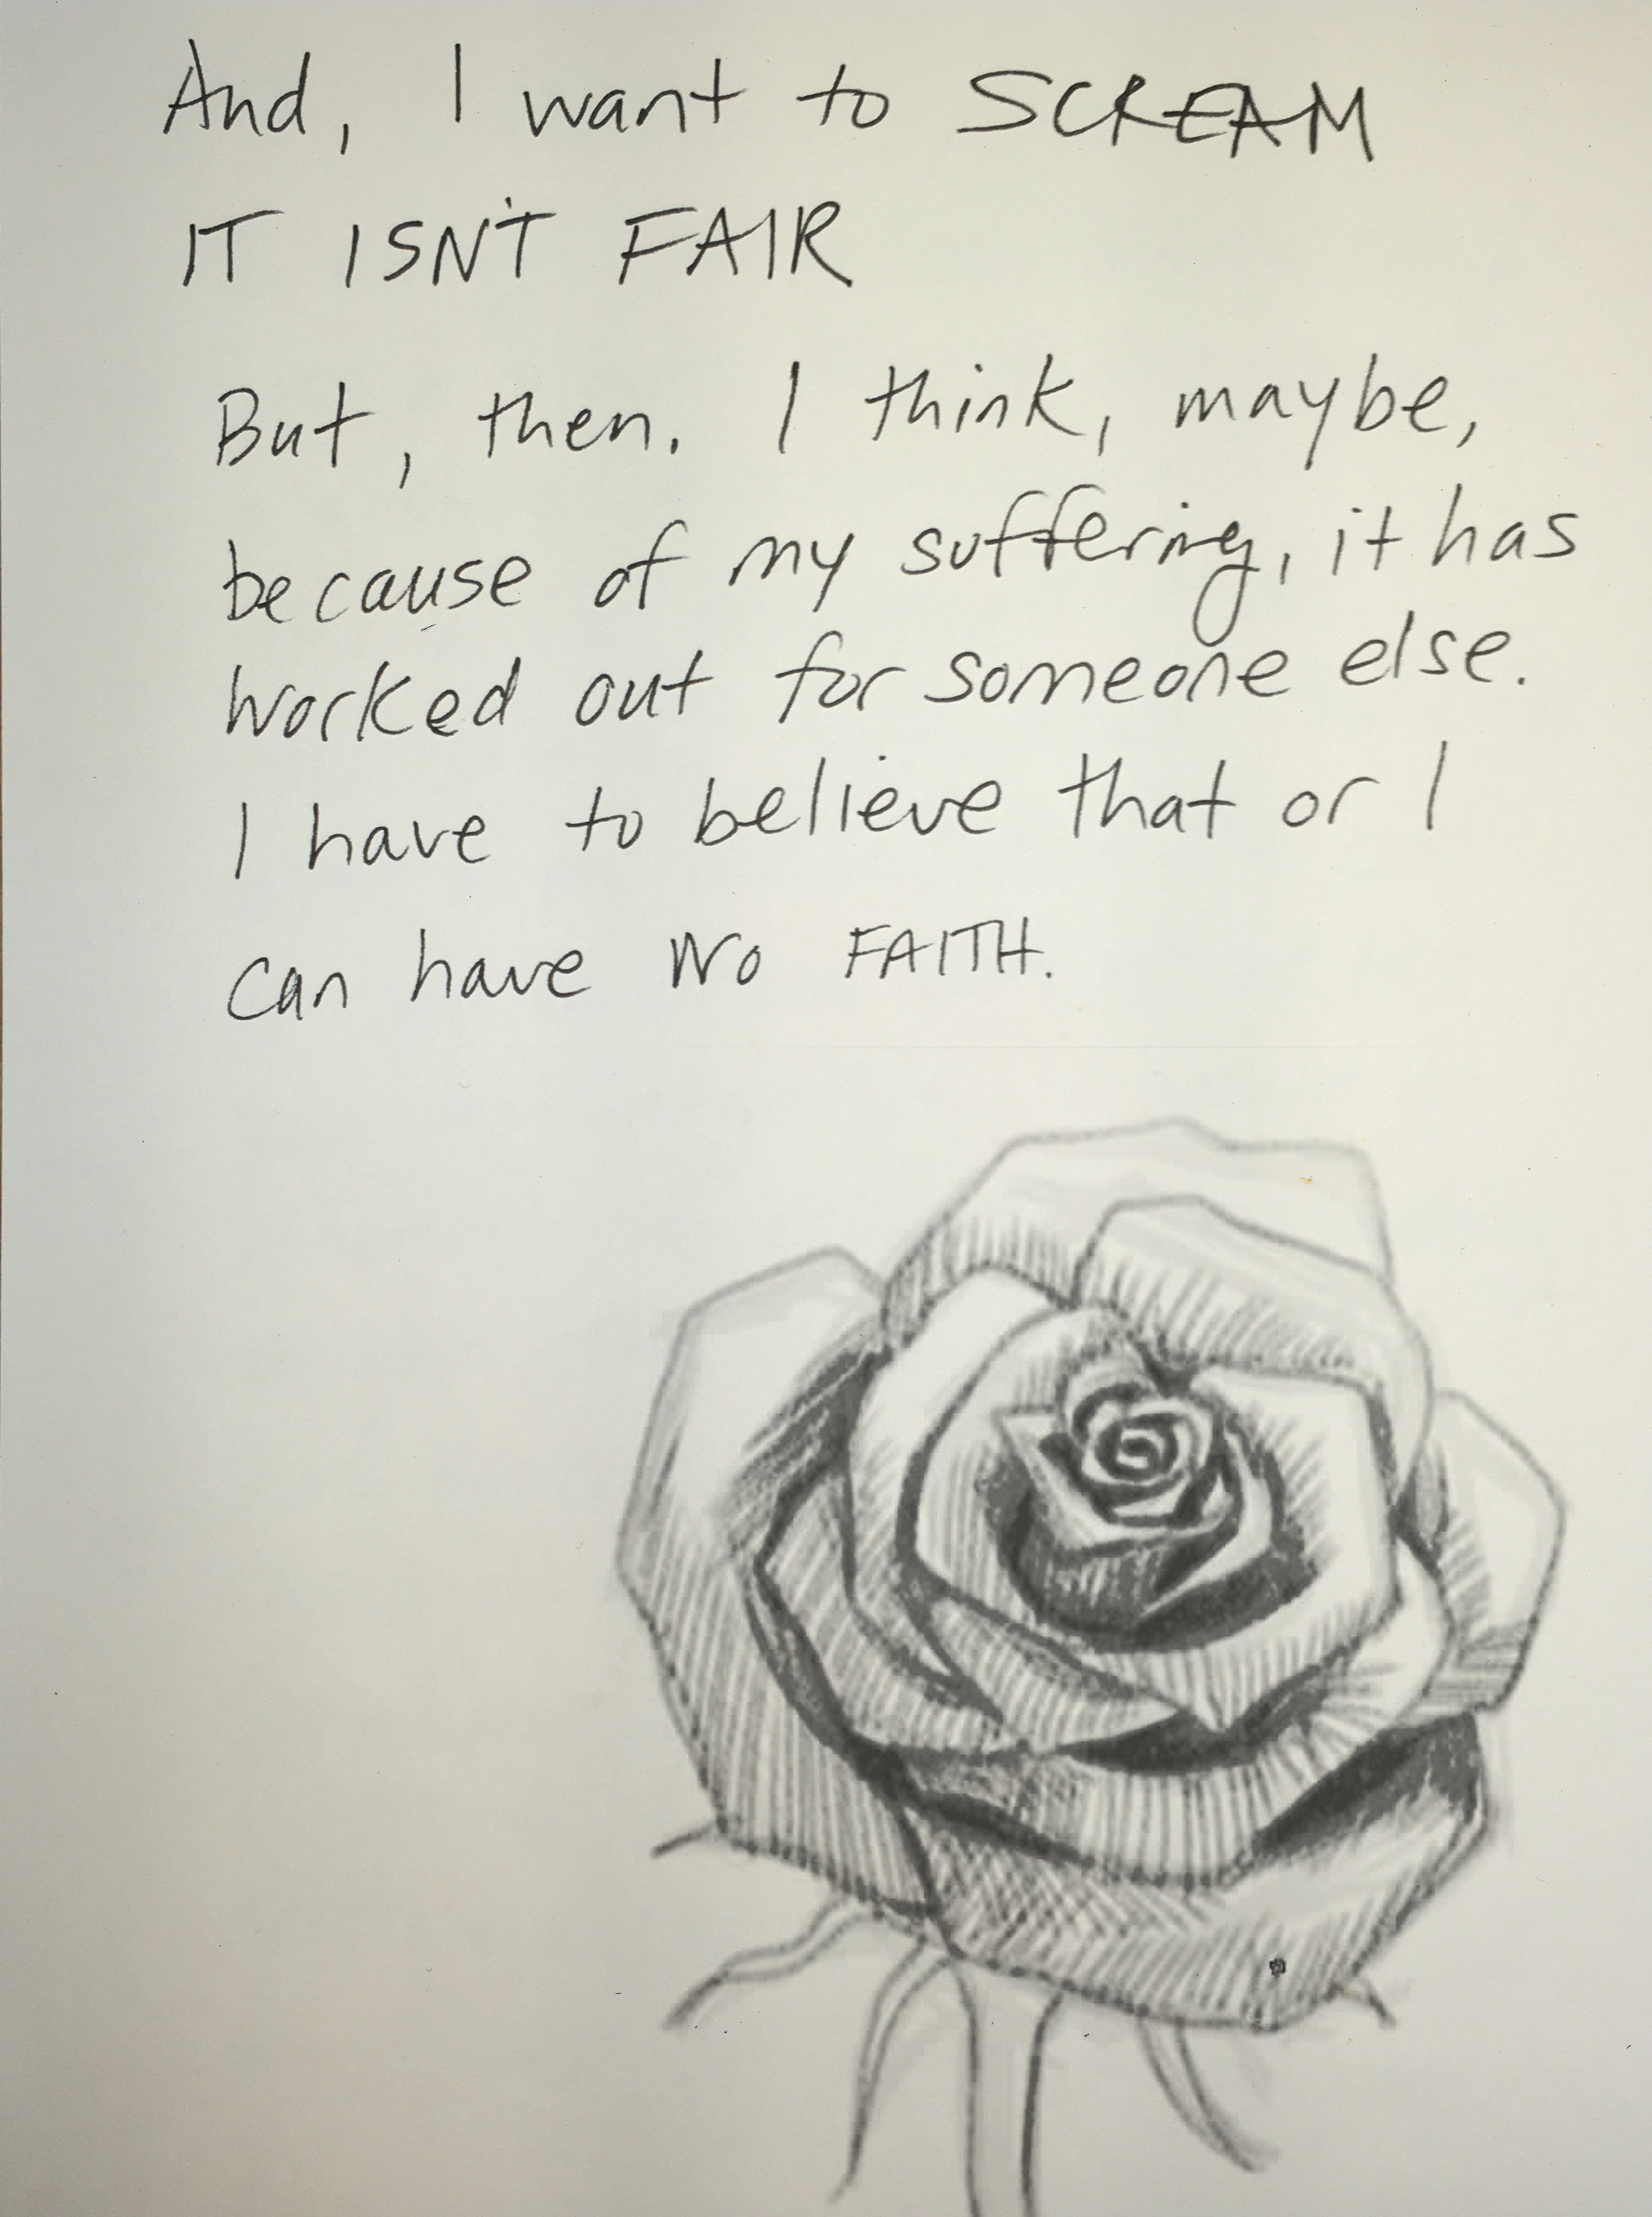 And, I want to SCREAM
IT ISN'T FAIR
But, then. I think, maybe,
because of my suffering, it has
worked out for someone else.
I have to believe that or I
can have NO FAITH.